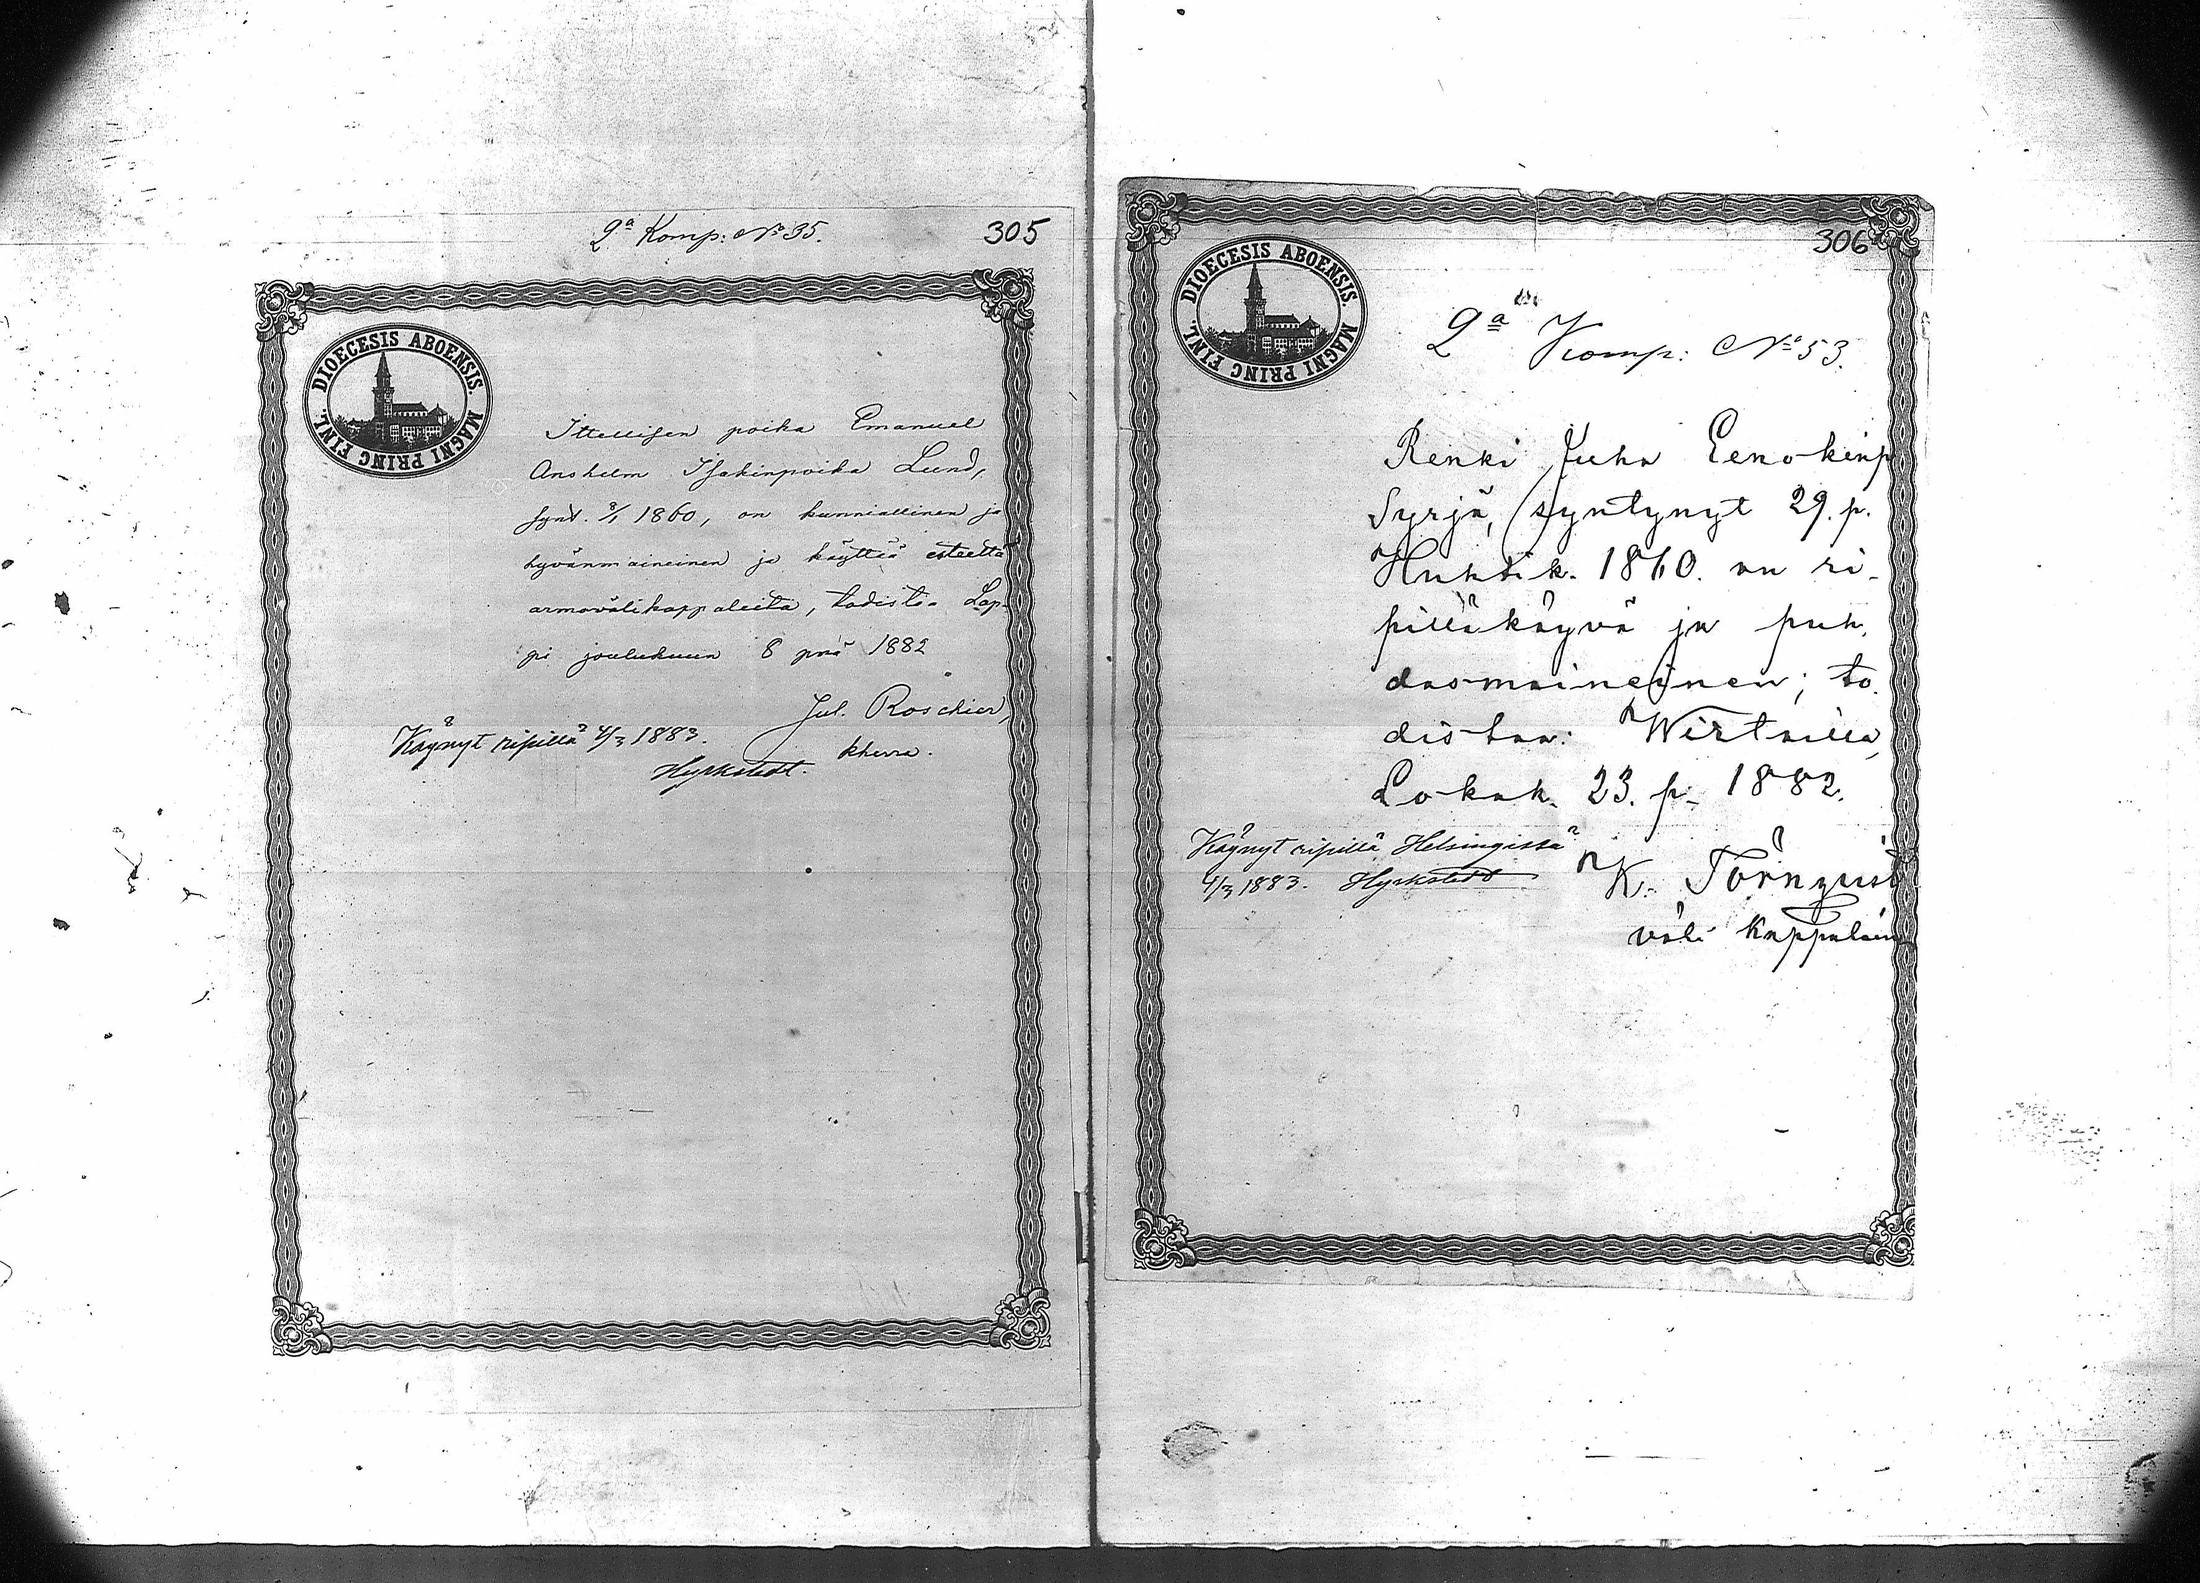 2ª Komp: No 35.
305
DIOECESIS ABOENSIS. MAGNI PRINC FINL.
Ittellisen poika Emanuel
Anshelm Isakinpoika Lund,
synt. 8/1 1860, on kunniallinen ja
hyvänmaineinen ja käyttää esteettä
armovälikappaleita, todistaa Lap-
pi joulukuun 8 pnä 1882
Jul. Roschier,
khrra.
Käynyt ripillä 4/3 1883.
Hyrkstedt.
306
DIOECESIS ABOENSIS. MAGNI PRINC FINL.
2ª Komp: No 53.
Renki Juha Eenokinp
Syrjä, syntynyt 29. p.
Huhtik. 1860. on ri-
pilläkäyvä ja puh.
dasmaineinen; to.
distaa: Wirtsilla,
Lokak. 23. p. 1882.
K. Törnqvist
väli kappalain
Käynyt ripillä Helsingissä
4/3 1883. Hyrkstedt